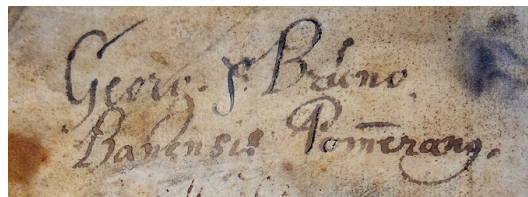 Georg. F. Bruno
Banensis Pomeranꝰ.